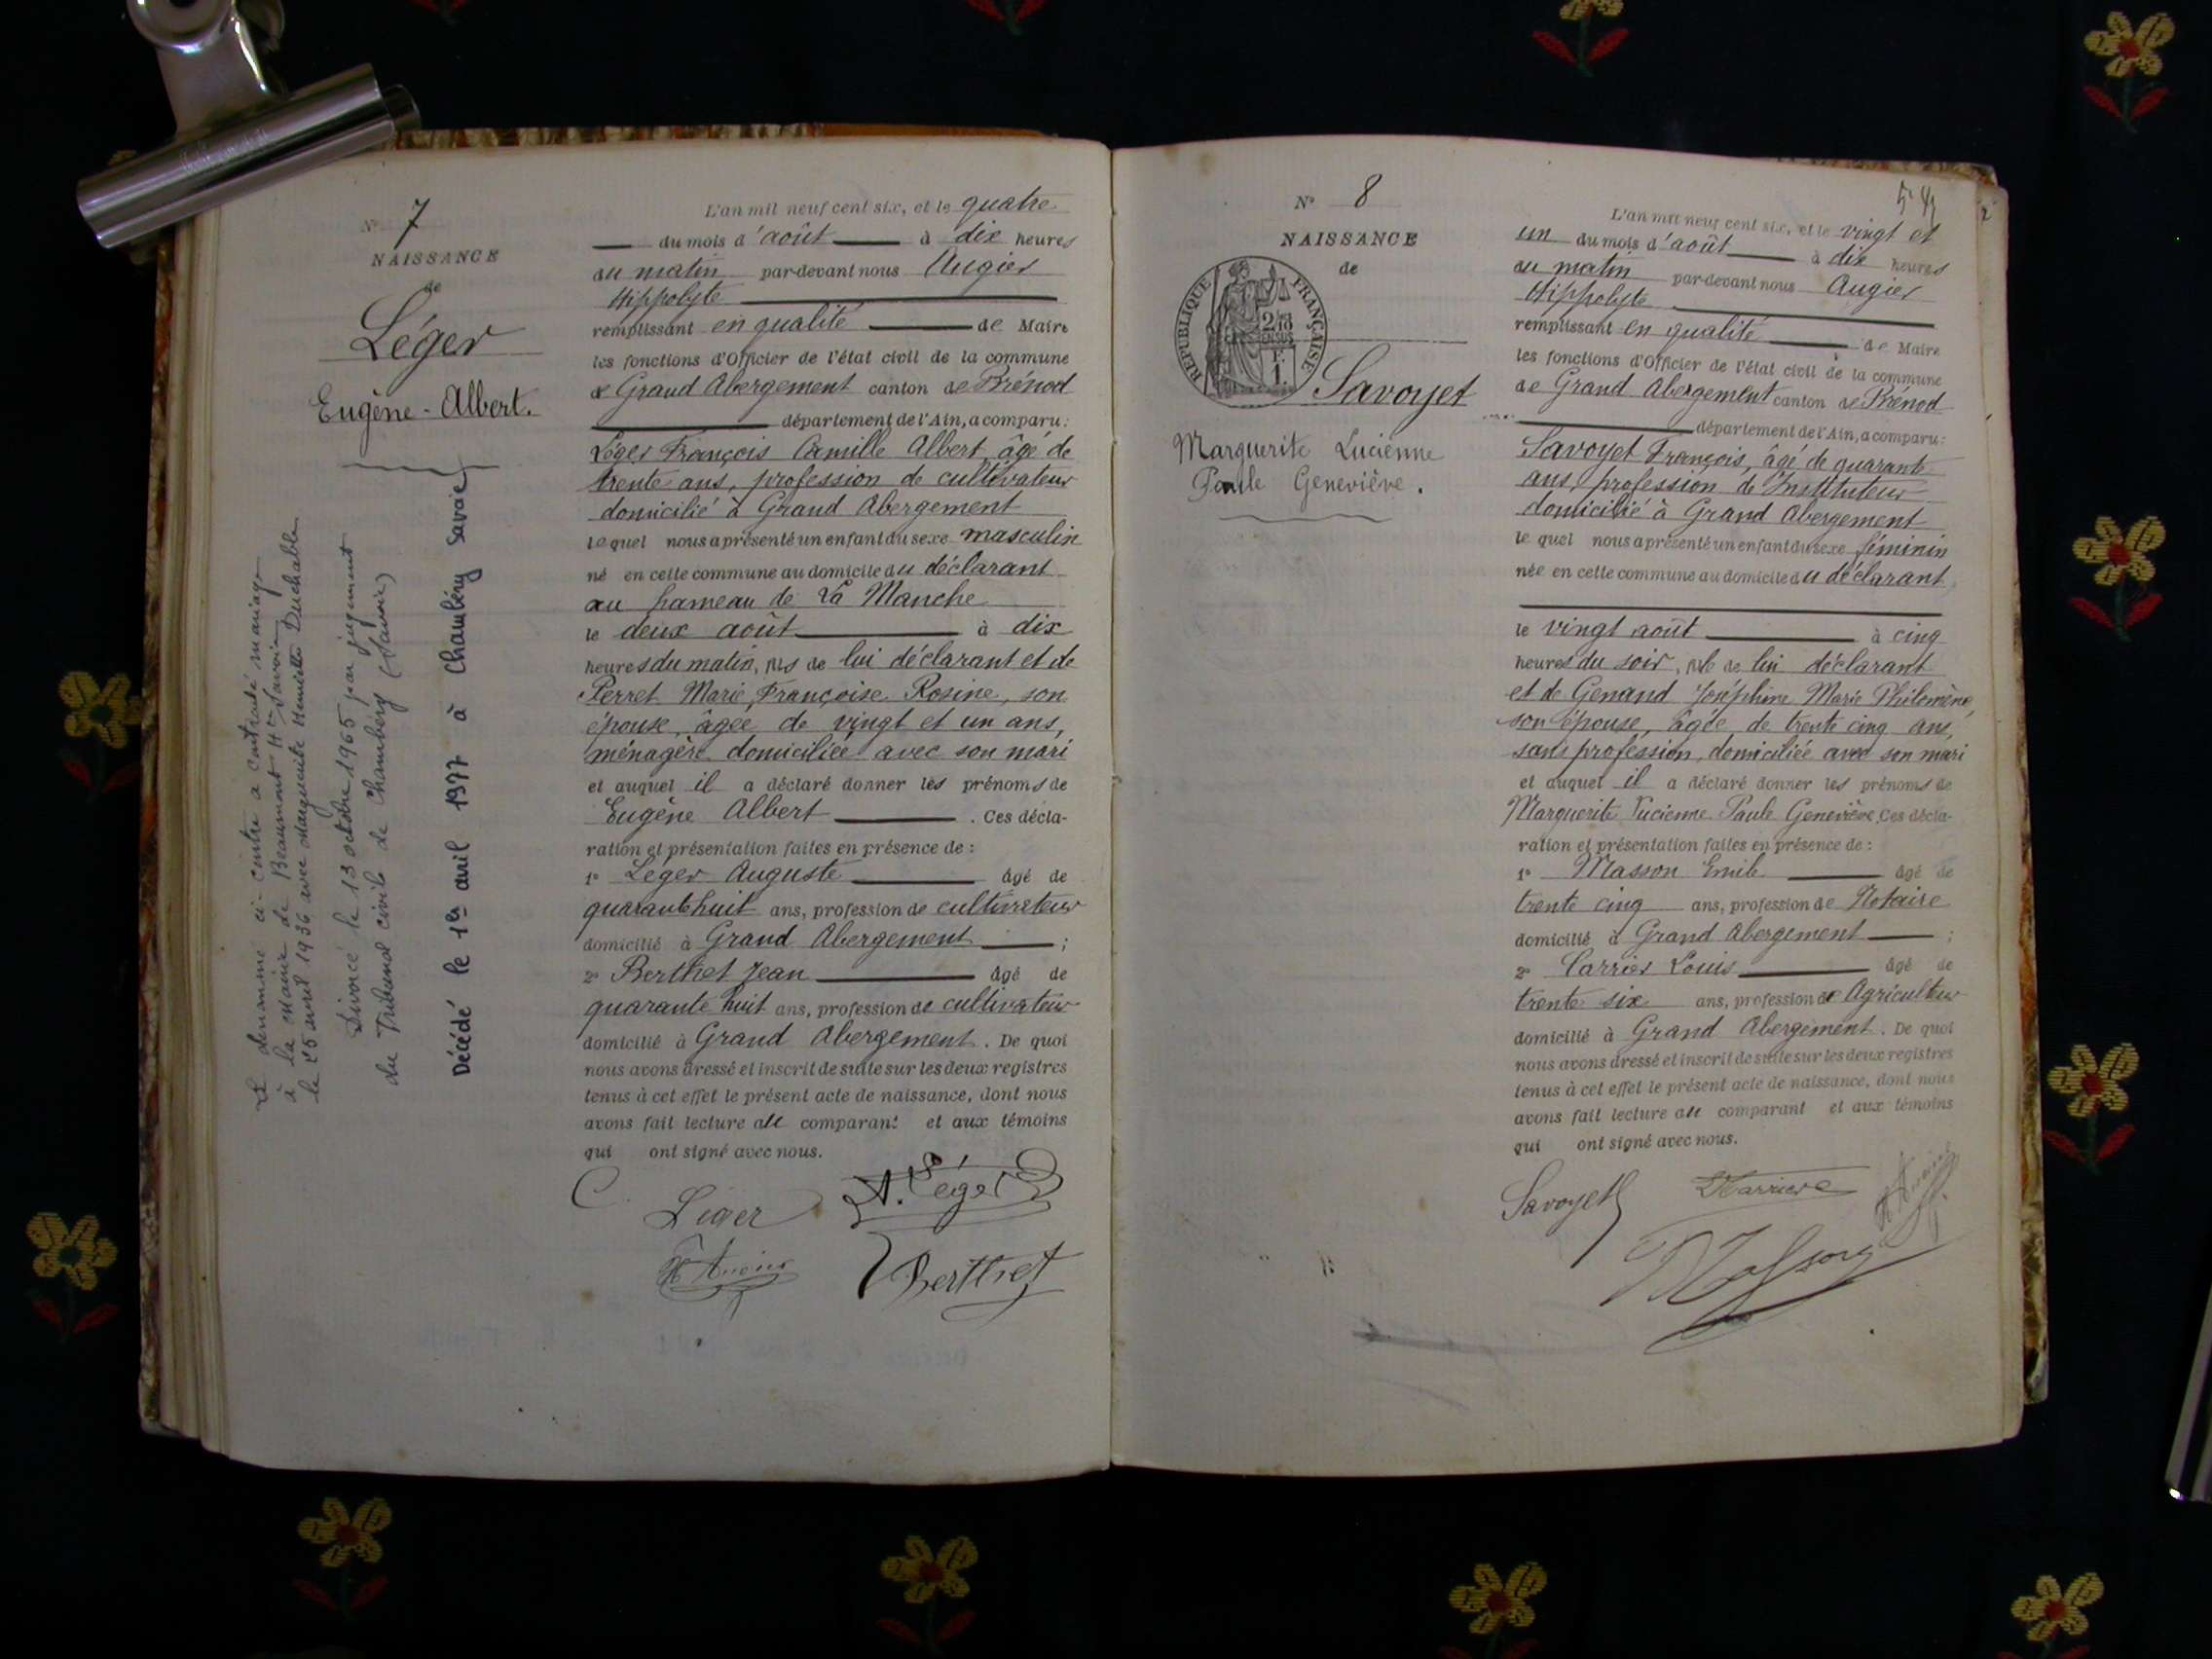 N° 7
NAISSANCE
de
Léger
Eugène-Albert.
Le dénommé ci-contre a contracté mariage
à la mairie de Beaumont Hte Savoie
le 25 avril 1936 avec Marguerite Henriette Duchable
Divorcé le 13 octobre 1965 par jugement
du Tribunal civil de Chambéry (Savoie)
Décédé le 1er avril 1977 à Chambéry Savoie
L'an mil neuf cent six, et le quatre
du mois d'août à dix heures
du matin par-devant nous Augier
Hippolyte
remplissant en qualité de Maire
les fonctions d'Officier de l'état civil de la commune
de Grand Abergement canton de Brénod
département de l'Ain, a comparu:
Léger François Camille Albert âgé de
trente ans, profession de cultivateur
domicilié à Grand Abergement
lequel nous a présenté un enfant du sexe masculin
né en cette commune au domicile du déclarant
au hameau de La Manche
le deux août à dix
heures du matin, fils de lui déclarant et de
Perret Marie, Françoise Rosine, son
épouse, âgée de vingt et un ans,
ménagère domiciliée avec son mari
et auquel il a déclaré donner les prénoms de
Eugène Albert . Ces décla-
ration et présentation faites en présence de :
1° Léger Auguste âgé de
quarante huit ans, profession de cultivateur
domicilié à Grand Abergement ;
2° Berthet Jean âgé de
quarante huit ans, profession de cultivateur
domicilié à Grand Abergement. De quoi
nous avons dressé et inscrit de suite sur les deux registres
tenus à cet effet le présent acte de naissance, dont nous
avons fait lecture au comparant et aux témoins
qui ont signé avec nous.
C. Léger A. Léger
H Augier Berthet
N° 8
NAISSANCE
de
REPUBLIQUE FRANÇAISE
Savoyet
Marguerite Lucienne
Paule Geneviève.
L'an mil neuf cent six, et le vingt et
un du mois d'août à dix heures
du matin par-devant nous Augier
Hippolyte
remplissant en qualité de Maire
les fonctions d'Officier de l'état civil de la commune
de Grand Abergement canton de Brénod
département de l'Ain, a comparu:
Savoyet François, âgé de quarante
ans, profession de Instituteur
domicilié à Grand Abergement
le quel nous a présenté un enfant du sexe féminin
née en cette commune au domicile du déclarant
le vingt août à cinq
heures du soir, fille de lui déclarant
et de Genand Joséphine Marie Philomène,
son épouse, âgée de trente cinq ans,
sans profession, domiciliée avec son mari
et auquel il a déclaré donner les prénoms de
Marguerite Lucienne Paule Geneviève. Ces décla-
ration et présentation faites en présence de :
1° Masson Emile âgé de
trente cinq ans, profession de Notaire
domicilié à Grand Abergement ;
2° Carrier Louis âgé de
trente six ans, profession de Agriculteur
domicilié à Grand Abergement. De quoi
nous avons dressé et inscrit de suite sur les deux registres
tenus à cet effet le présent acte de naissance, dont nous
avons fait lecture au comparant et aux témoins
qui ont signé avec nous.
Savoyet
Masson